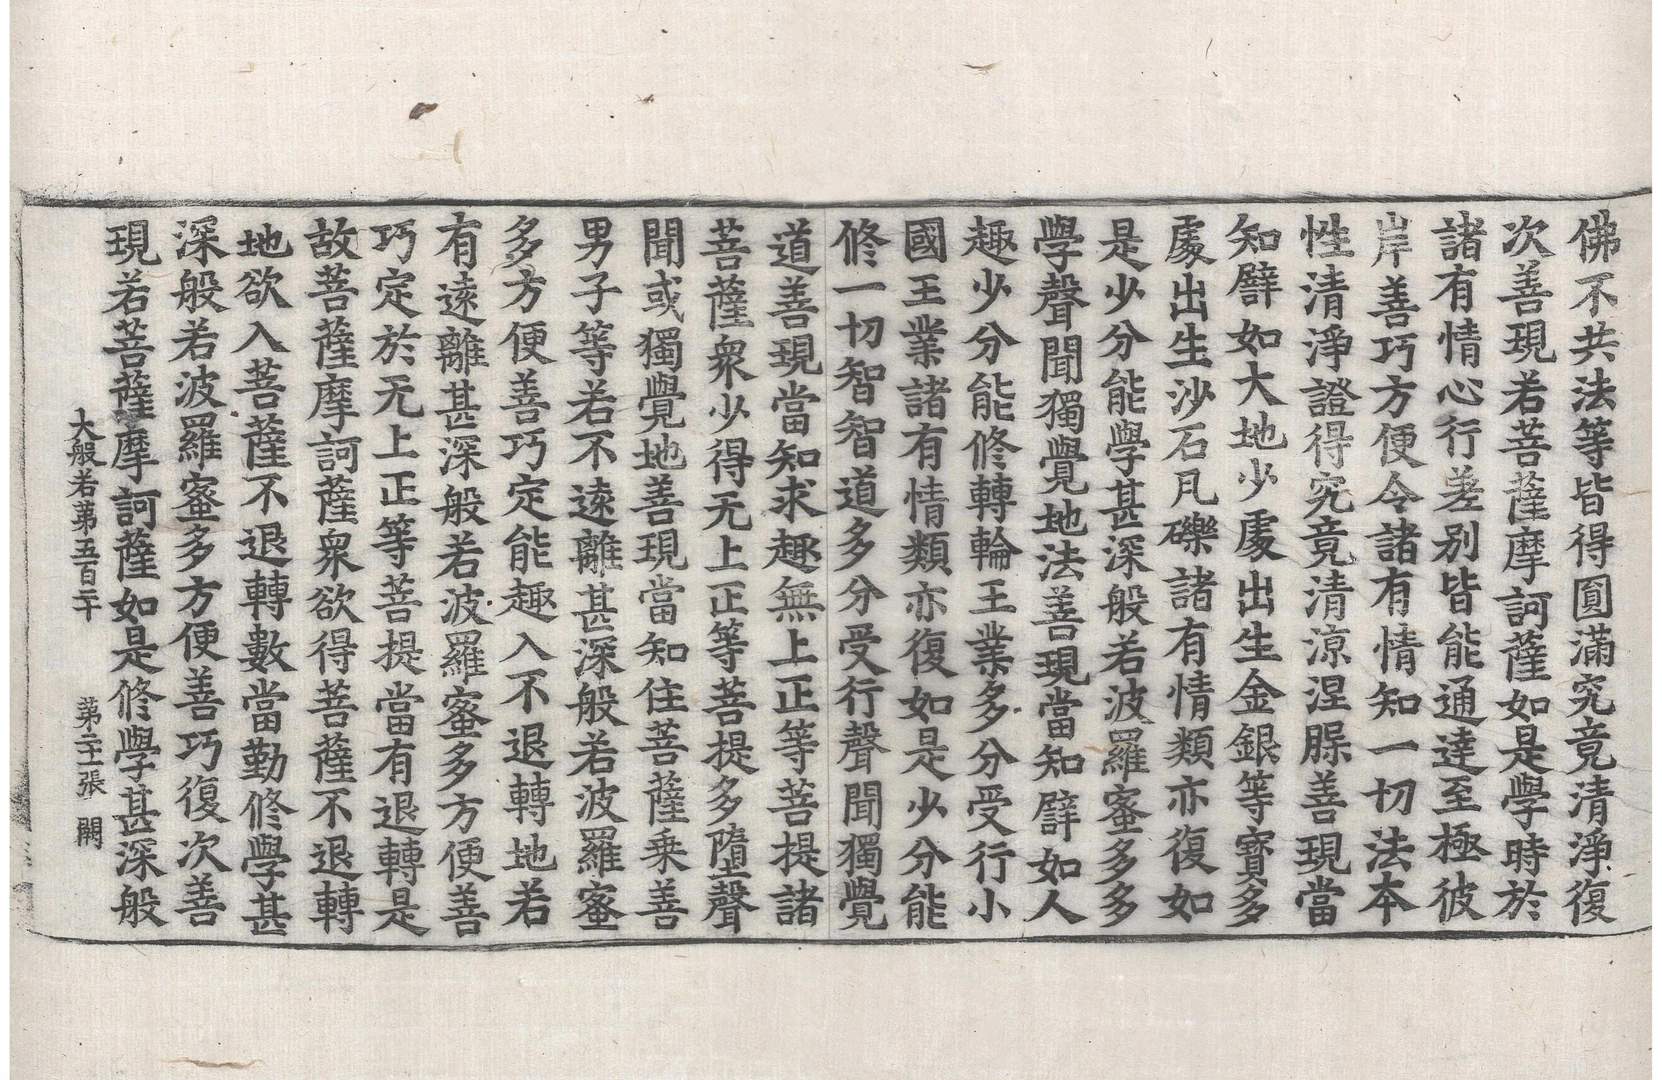 佛不共法等皆得圓滿究竟清淨復
次善現若菩薩摩訶薩如是學時於
諸有情心行差别皆能通達至極彼
岸善巧方便令諸有情知一切法本
性清淨證得究竟清涼涅槃善現當
知譬如大地少處出生金銀等寶多
處出生沙石凡礫諸有情類亦復如
是少分能學甚深般若波羅蜜多多
學聲聞獨覺地法善現當知譬如人
趣少分能修轉輪王業多分受行小
國王業諸有情類亦復如是少分能
修一切智智道多分受行聲聞獨覺
道善現當知求趣無上正等菩提諸
菩薩衆少得无上正等菩提多墮聲
聞或獨覺地善現當知住菩薩乘善
男子等若不遠離甚深般若波羅蜜
多方便善巧定能趣入不退轉地若
有遠離甚深般若波羅蜜多方便善
巧定於无上正等菩提當有退轉是
故菩薩摩訶薩衆欲得菩薩不退轉
地欲入菩薩不退轉數當勤修學甚
深般若波羅蜜多方便善巧復次善
現若菩薩摩訶薩如是修學甚深般
大般若第五百二十 第二十一張 闕